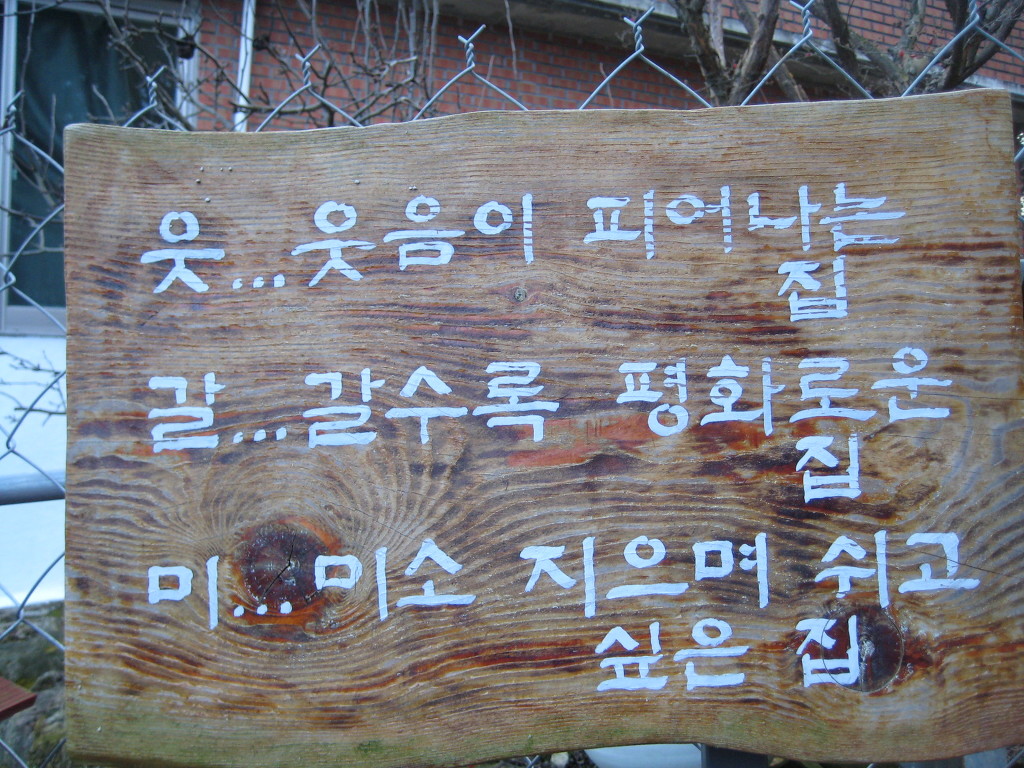 웃...웃음이 피어나는
집
갈...갈수록 평화로운
집
미...미소 지으며 쉬고
싶은 집